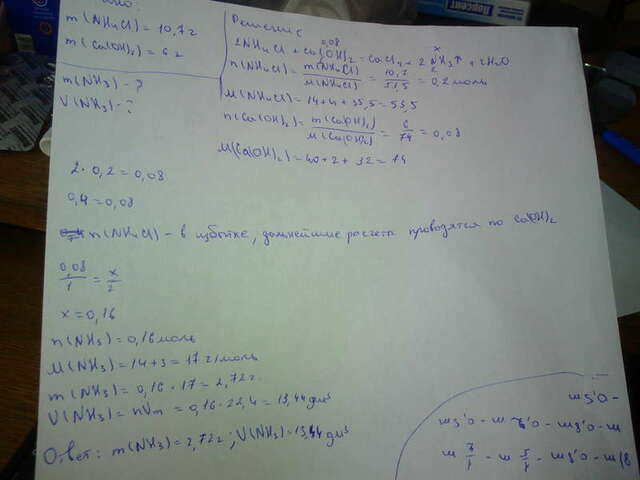 но:
m(NH₄Cl) = 10,7 г
m(Ca(OH)₂) = 6 г
m(NH₃) - ?
V(NH₃) - ?
Решение
0,08 x
2NH₄Cl + Ca(OH)₂ = CaCl₂ + 2NH₃↑ + 2H₂O
2
n(NH₄Cl) = m(NH₄Cl)/M(NH₄Cl) = 10,7/53,5 = 0,2 моль
M(NH₄Cl) = 14 + 4 + 35,5 = 53,5
n(Ca(OH)₂) = m(Ca(OH)₂)/M(Ca(OH)₂) = 6/74 = 0,08
M(Ca(OH)₂) = 40 + 2 + 32 = 74
2 · 0,2 = 0,08
0,4 = 0,08
n(NH₄Cl) - в избытке, дальнейшие расчета проводятся по Ca(OH)₂
0,08/1 = x/2
x = 0,16
n(NH₃) = 0,16 моль
M(NH₃) = 14 + 3 = 17 г/моль
m(NH₃) = 0,16 · 17 = 2,72 г.
V(NH₃) = nVm = 0,16 · 22,4 = 13,44 дм³
Ответ: m(NH₃) = 2,72 г; V(NH₃) = 13,44 дм³